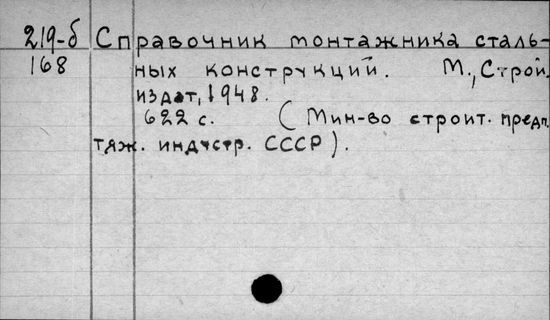 219-б Справочник монтажника сталь-
168 ных конструкций. М., Строй-
издат, 1948.
622 с. (Мин-во строит. предп.
тяж. индустр. СССР).